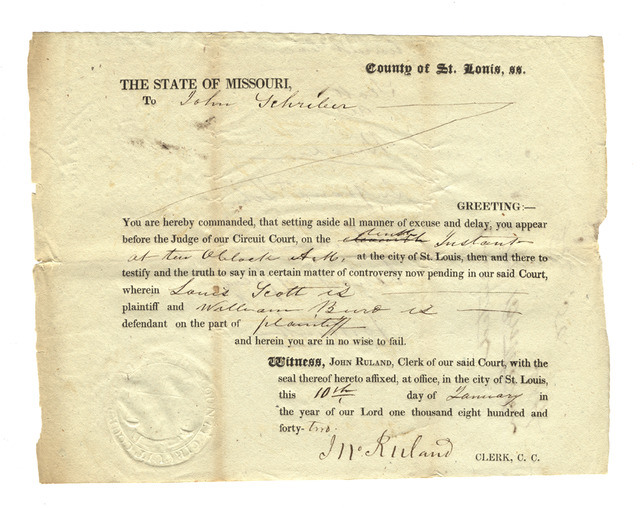 County of St. Louis, ss.
THE STATE OF MISSOURI,
To John Schriber
GREETING:—
You are hereby commanded, that setting aside all manner of excuse and delay, you appear
before the Judge of our Circuit Court, on the tenth Instant
at ten Oblock A.M. at the city of St. Louis, then and there to
testify and the truth to say in a certain matter of controversy now pending in our said Court,
wherein Louis Scott is
plaintiff and William Burd is
defendant on the part of plaintiff
and herein you are in no wise to fail.
Witness, JOHN RULAND, Clerk of our said Court, with the
seal thereof hereto affixed, at office, in the city of St. Louis,
this 10th day of January in
the year of our Lord one thousand eight hundred and
forty-two.
Jno Ruland CLERK, C. C.